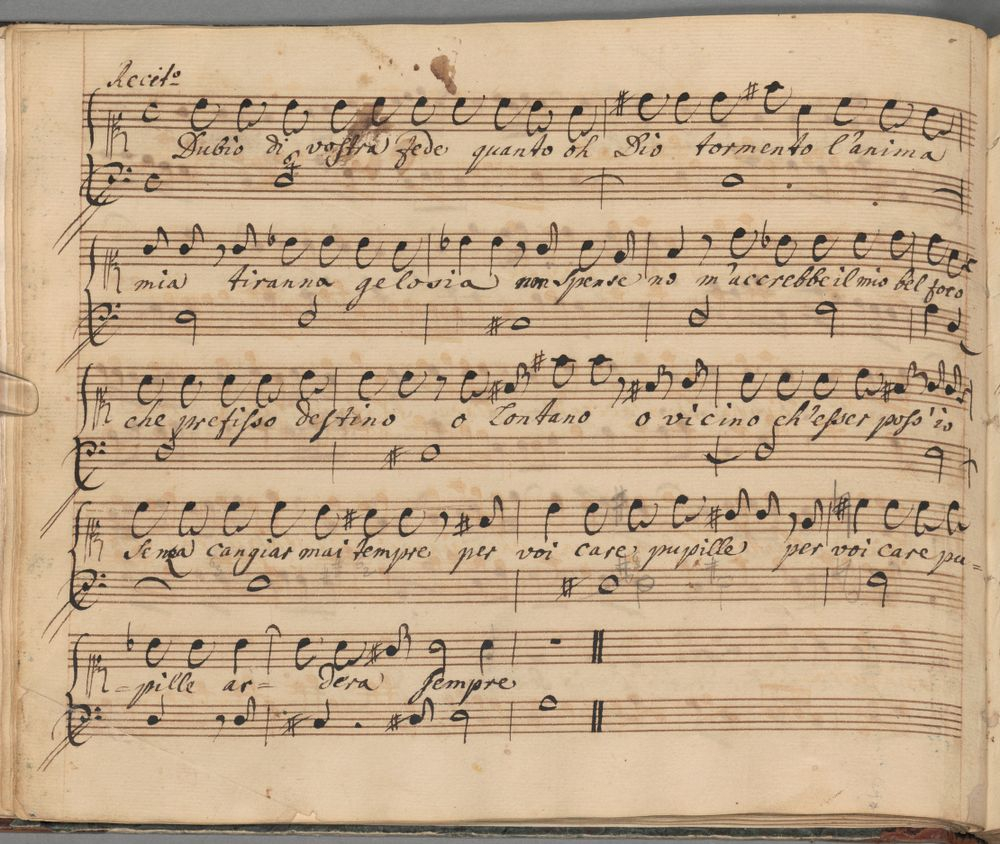 Recit.o
Dubio di vostra fede quanto oh Dio tormento l'anima
mia tiranna gelosia non spense no m'accrebbe il mio bel foco
che prefisso destino o lontano o vicino ch'esser poss'io
senza cangiar mai tempre per voi care pupille per voi care pu=
=pille ar= derà sempre